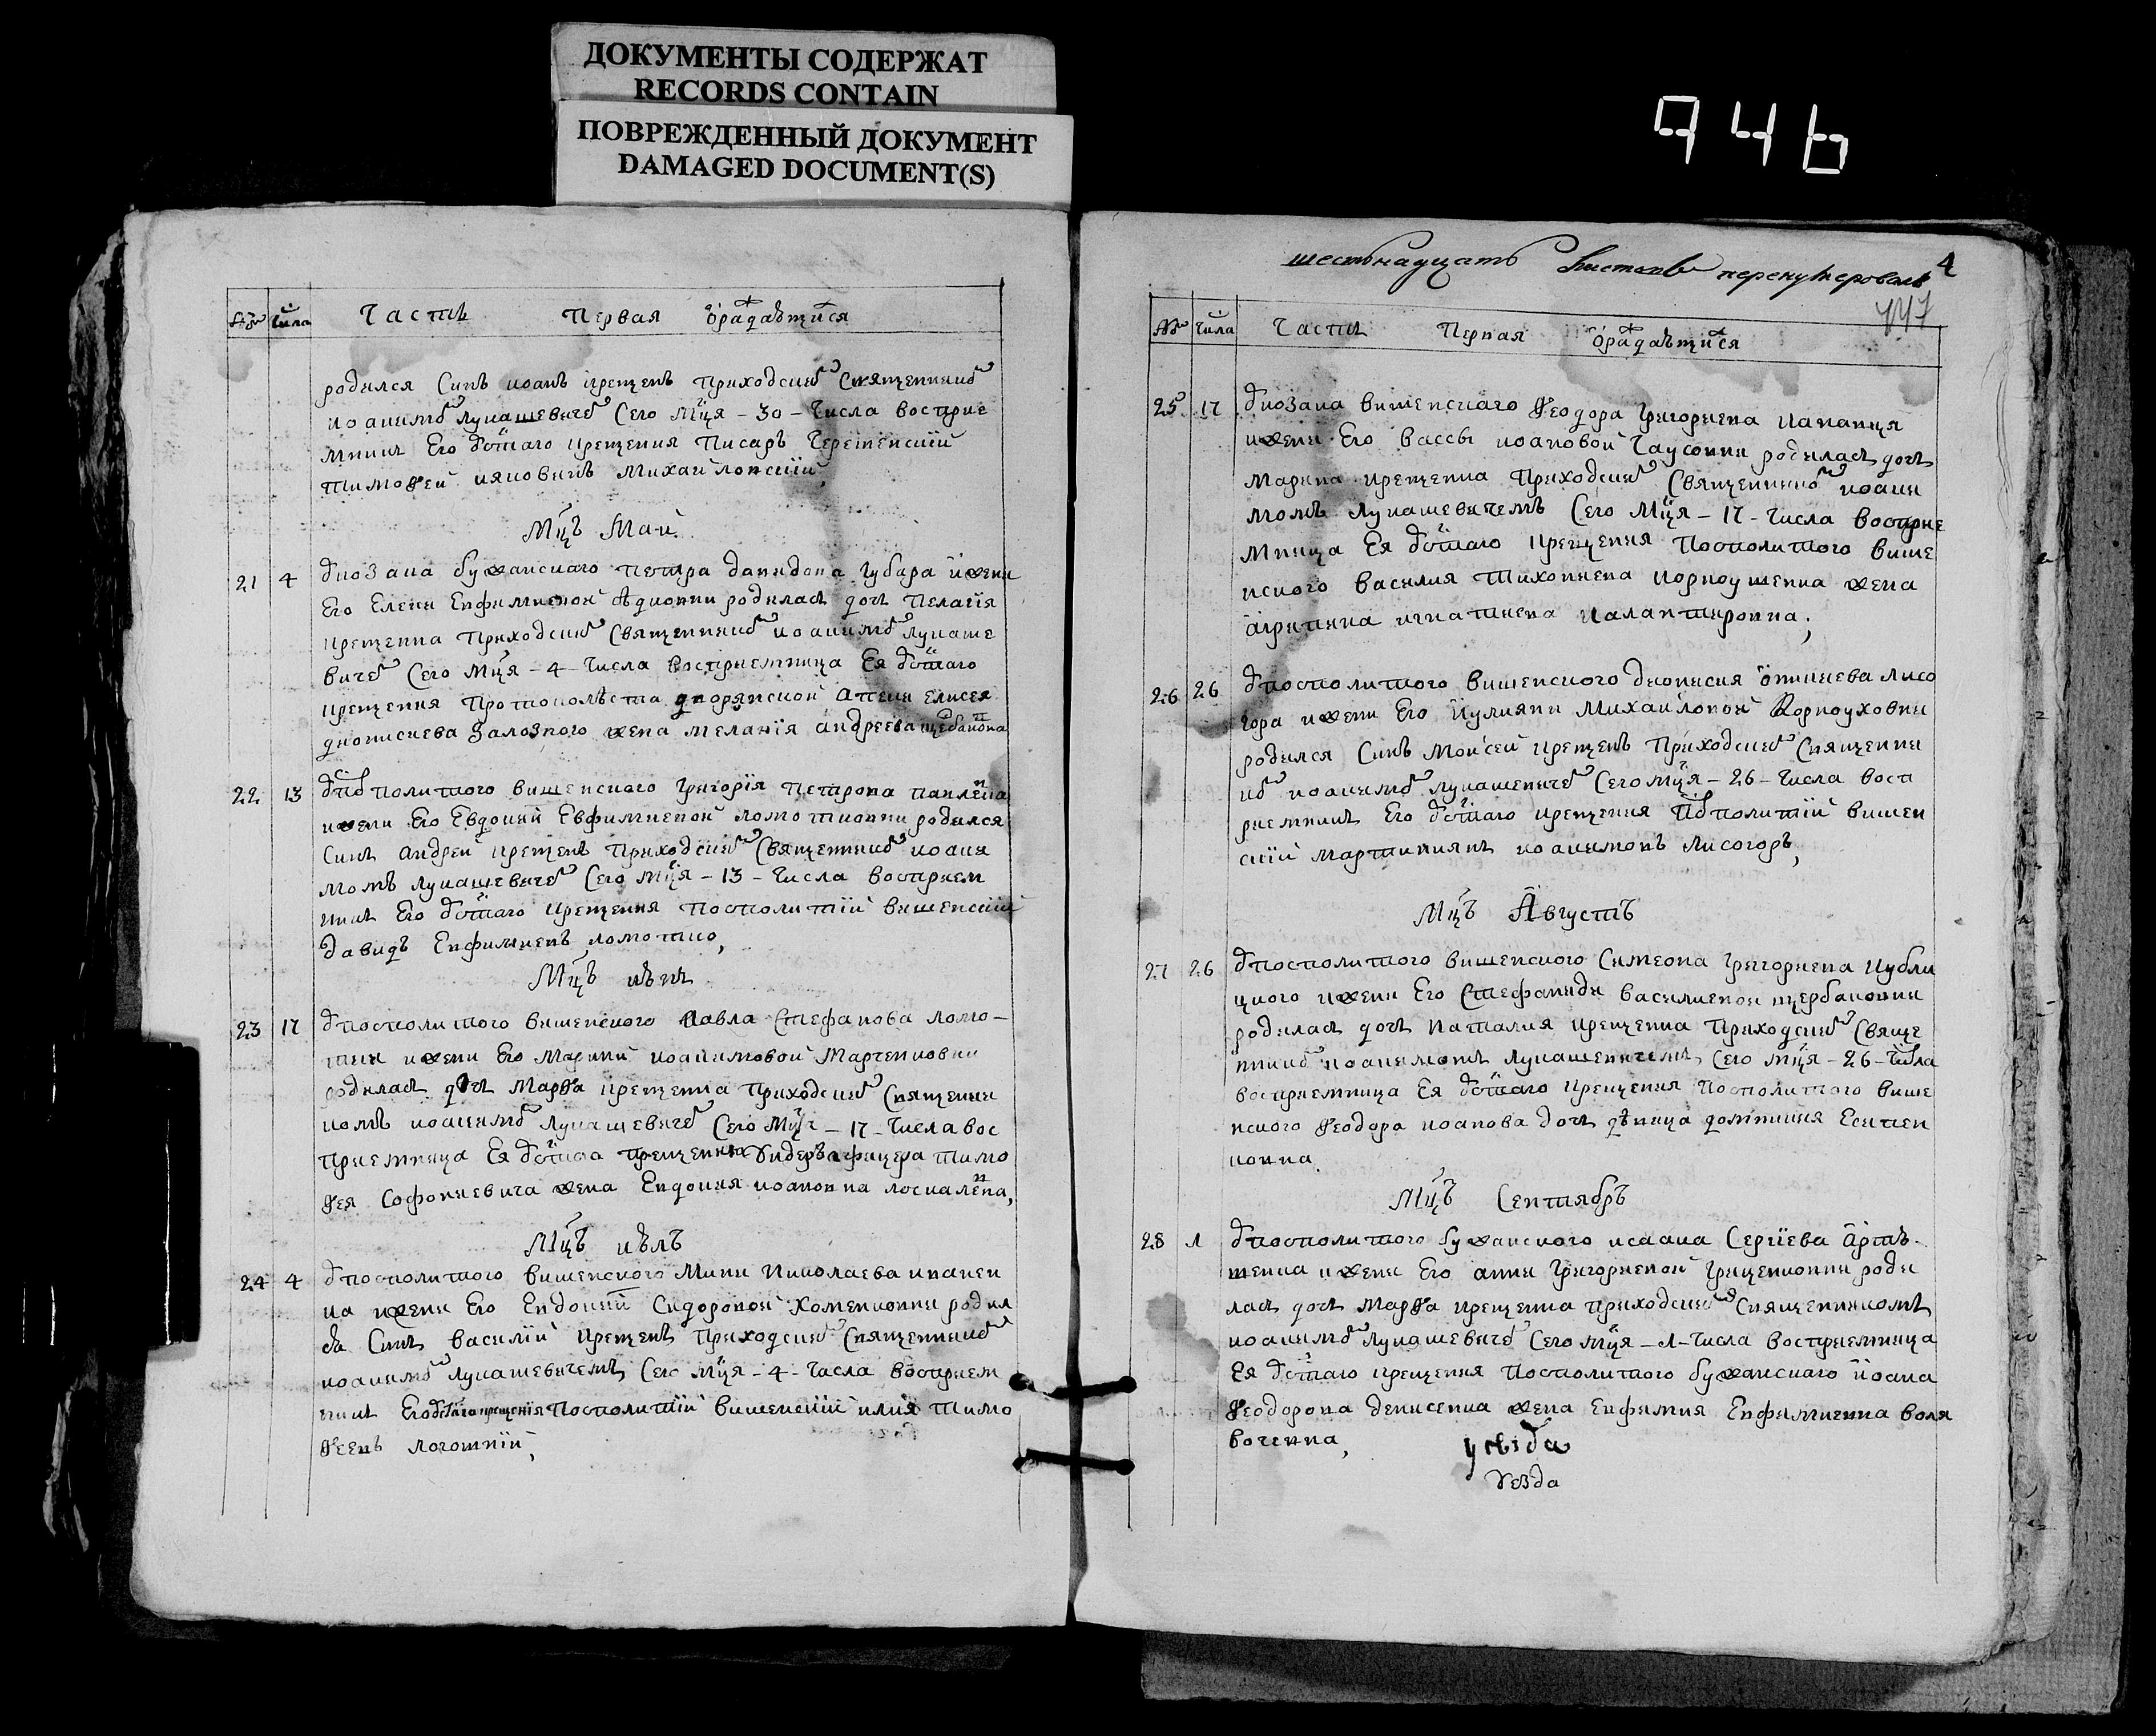 ДОКУМЕНТЫ СОДЕРЖАТ
RECORDS CONTAIN
ПОВРЕЖДЕННЫЙ ДОКУМЕНТ
DAMAGED DOCUMENT(S)
946
числа Часть Первая
родился Синъ иоанъ крещенъ Приходским Священником
иоакимом Лукашевичем Сего Мця - 30 - Числа восприе
мникъ Его от стаго крещения Писаръ
тимофей Михайловский,
Мцъ Май
21 4 У козака бужанскаго Петра давидова Губара и жени
Его Елени Евфимиевой родилась дочь Пелагія
крещенна Приходским Священником иоакимом Лукаше
вичем Сего Мця - 4 - Числа восприемница Ея от стаго
крещения дворянской Елисея
дионисиева Залозного жена меланія андреева
22 13 У посполитого вишенского Григорія Петрова
и жени Его Евдокий Евфимиевой родился
Синъ андрей крещенъ Приходским Священником иоаки
момъ Лукашевичем Сего Мця - 13 - Числа восприем
никъ Его от стаго крещения посполитий вишенский
давидъ Евфимиевъ ломотко,
Мцъ июнь
23 17 У посполитого вишенского Павла Стефанова ломо-
тки и жени Его Марини иоакимовой Марченковни
родилась дочь Марфа крещенна Приходским Священни
комъ иоакимом Лукашевичем Сего Мця - 17 - Числа вос
приемница Ея от стаго крещения Ундеръ афицера тимо
фея Софониевича жена Евдокия иоановна
Мцъ июль
24 4 У посполитого вишенского Мини Николаева
ка и жени Его Евдокий Сидоровой хоменковни родил
ся Синъ василий крещенъ Приходским Священником
иоакимом Лукашевичемъ Сего Мця - 4 - Числа восприем
никъ Его от стаго крещения Посполитий вишенский илия тимо
феевъ
4
шестьнадцать листовъ перенумеровалъ
447
числа Часть Первая
25 17 У козака вишенскаго Феодора Григориева
и жени Его вассы иоановой родилась дочь
Марина крещенна Приходским Священником иоаки
момъ Лукашевичемъ Сего Мця - 17 - Числа восприе
мница Ея от стаго крещения Посполитого више
нского василия тихониева жена
агрипина игнатиева
26 26 У посполитого вишенского дионисия Лисо
гора и жени Его иулияни Михайловой Корноуховни
родился Синъ Моисей крещенъ Приходским Священни
ком иоакимом Лукашевичем Сего Мця - 26 - Числа восп
риемникъ Его от стаго крещения Посполитий вишен
ский мартиниянъ иоакимовъ лисогоръ,
Мцъ Августъ
27 26 У посполитого вишенского Симеона Григориева Кубли
цкого и жени Его Стефаниди василиевой щербаковни
родилась дочь Наталия крещенна Приходским Свяще
нником иоакимомъ Лукашевичемъ Сего Мця - 26 - Числа
восприемница Ея от стаго крещения Посполитого више
нского Феодора иоанова дочь девица домникия
ковна
Мцъ Сентябръ
28 1 У посполитого бужанского исаака Сергіева
шенка и жени Его анни Григориевой Гриценковни роди
лась дочь Марфа крещенна Приходским Священникомъ
иоакимом Лукашевичем Сего Мця - 1 - Числа восприемница
Ея от стаго крещения Посполитого бужанскаго иоана
Феодорова денисенка жена Евфимия Евфимиевна воля
вочевна,
уезда
Уезда